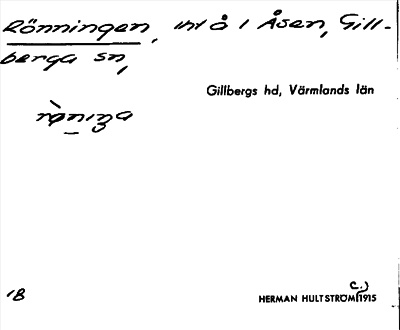 Rönningen, int å 1 Åsen, Gill-
berga sn,
Gillbergs hd, Värmlands län
1B
c.)
HERMAN HULTSTRÖM 1915